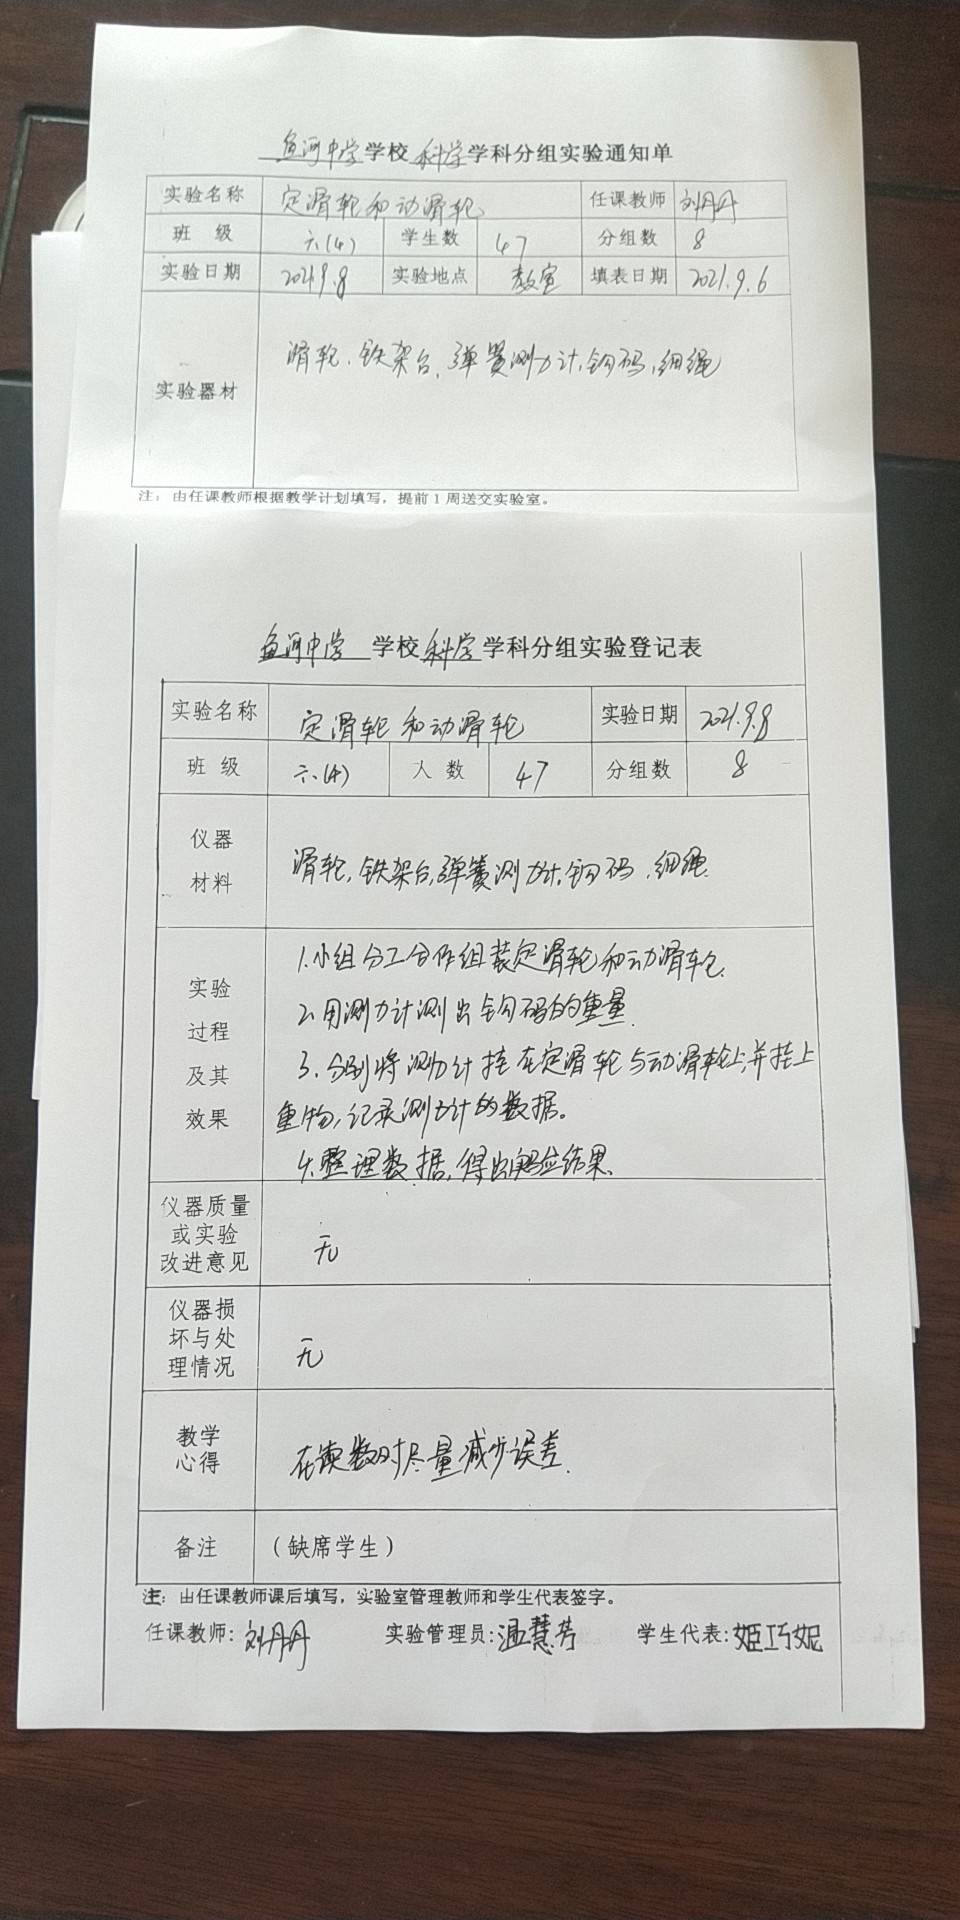 鱼河中学学校科学学科分组实验通知单
实验名称 定滑轮和动滑轮 任课教师 刘丹丹
班 级 六(4) 学生数 47 分组数 8
实验日期 2021.9.8 实验地点 教室 填表日期 2021.9.6
实验器材 滑轮、铁架台、弹簧测力计、钩码、细绳
注：由任课教师根据教学计划填写，提前1周送交实验室。
鱼河中学 学校科学学科分组实验登记表
实验名称 定滑轮和动滑轮 实验日期 2021.9.8
班 级 六(4) 人 数 47 分组数 8
仪器材料 滑轮、铁架台、弹簧测力计、钩码、细绳.
实验过程及其效果
1.小组分工合作组装定滑轮和动滑轮.
2.用测力计测出钩码的重量.
3.分别将测力计挂在定滑轮与动滑轮上,并挂上
重物,记录测力计的数据。
4.整理数据,得出实验结果.
仪器质量或实验改进意见 无
仪器损坏与处理情况 无
教学心得 在读数时尽量减少误差.
备注 （缺席学生）
注：由任课教师课后填写，实验室管理教师和学生代表签字。
任课教师:刘丹丹 实验管理员:温慧芳 学生代表:姬巧妮